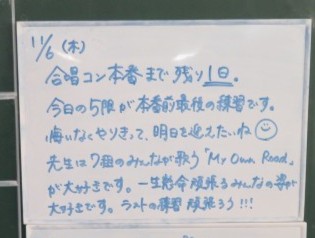 11/6 (木)
合唱コン本番まで残り1日。
今日の5限が本番前最後の練習です。
悔いなくやりきって、明日を迎えたいね
先生は7組のみんなが歌う「My Own Road」
が大好きです。一生懸命頑張るみんなの姿が
大好きです。ラストの練習頑張ろう!!!